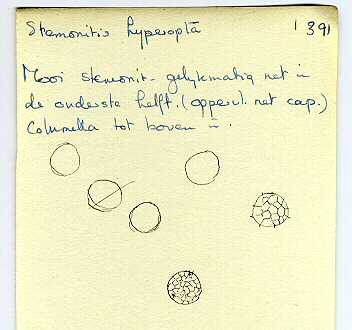 Stemonitis hyperopta 1391
Mooi stemonit- gelykmatig net in
de onderste helft. (oppervl. net cap.)
Columella tot boven in.